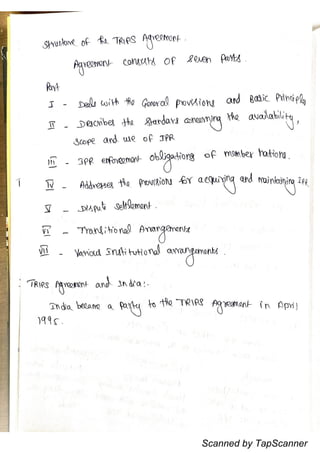 Structure of the TRIPS Agreement.
Agreement consists OF Seven Parts.
Part
I - Deals with the General provisions and Basic Principles
II - Describes the Standards concerning the availability,
Scope and use of IPR
III - IPR enforcement obligations of member nations.
IV - Addresses the provisions for acquiring and maintaining IPR.
V - Dispute settlement.
VI - Transitional Arrangements
VII - Various Institutional arrangements.
TRIPS Agreement and India:-
India became a party to the TRIPS Agreement in April
1995.
Scanned by TapScanner